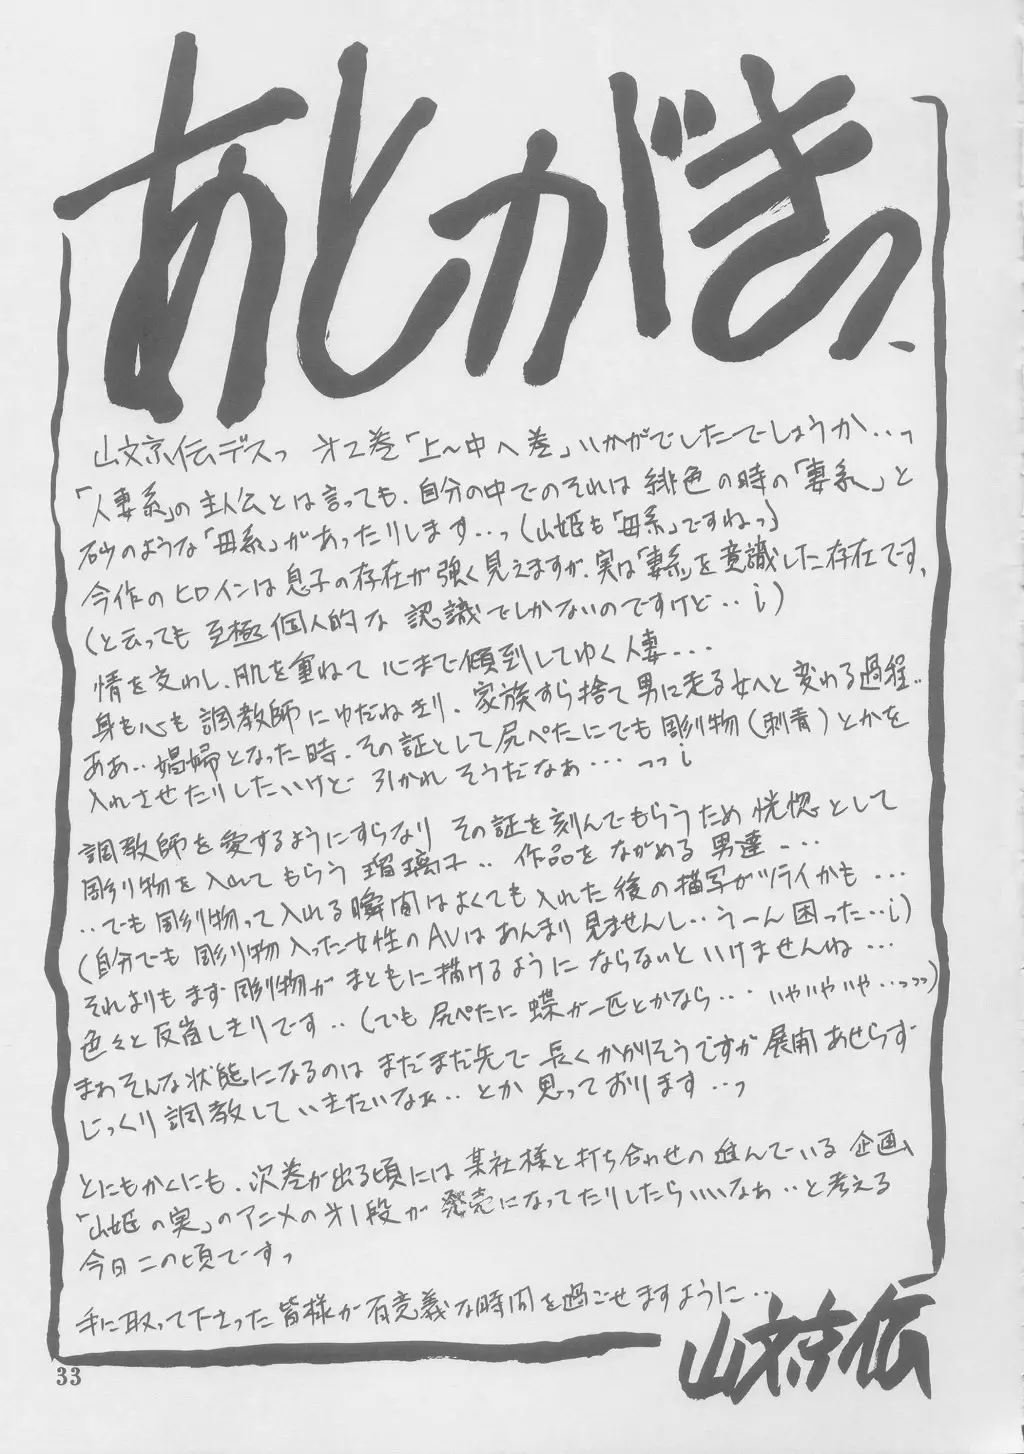 あとがきっ、
山文京伝デスっ 才2巻「上〜中へ巻」いかがでしたでしょうか‥っ
「人妻系」の主人公とは言っても、自分の中でのそれは緋色の時の「妻系」と
砂のような「母系」があったりします‥っ(山姫も「母系」ですねっ)
今作のヒロインは息子の存在が強く見えますが、実は「妻系」を意識した存在です、
(と云っても至極個人的な認識でしかないのですけど‥i)
情を交わし、肌を重ねて心まで傾倒してゆく人妻‥‥
身も心も調教師にゆだねきり、家族すら捨て男に走る女へと変わる過程‥
ああ‥娼婦となった時、その証として尻ぺたにでも彫り物(刺青)とかを
入れさせたりしたいけど引かれそうだなぁ‥‥っっi
調教師を愛するようにすらなり その証を刻んでもらうため恍惚として
彫り物を入れてもらう瑠璃子‥ 作品をながめる男達‥‥
‥でも彫り物って入れる瞬間はよくても入れた後の描写がツライかも‥‥
(自分でも彫り物入った女性のAVはあんまり見ませんし‥うーん困った‥i)
それよりもまず彫り物がまともに描けるようにならないといけませんね‥‥
色々と反省しきりです‥(でも尻ぺたに蝶が一匹とかなら‥‥いやいやいや‥っっっ)
まわそんな状態になるのはまだまだ先で長くかかりそうですが展開あせらず
じっくり調教していきたいなぁ‥とか思っております‥っ
とにもかくにも、次巻が出る頃には某社様と打ち合わせの進んでいる企画、
「山姫の実」のアニメの才1段が発売になってたりしたらいいなぁ‥と考える
今日この頃ですっ
手に取って下さった皆様が有意義な時間を過ごせますように‥
山文京伝
33